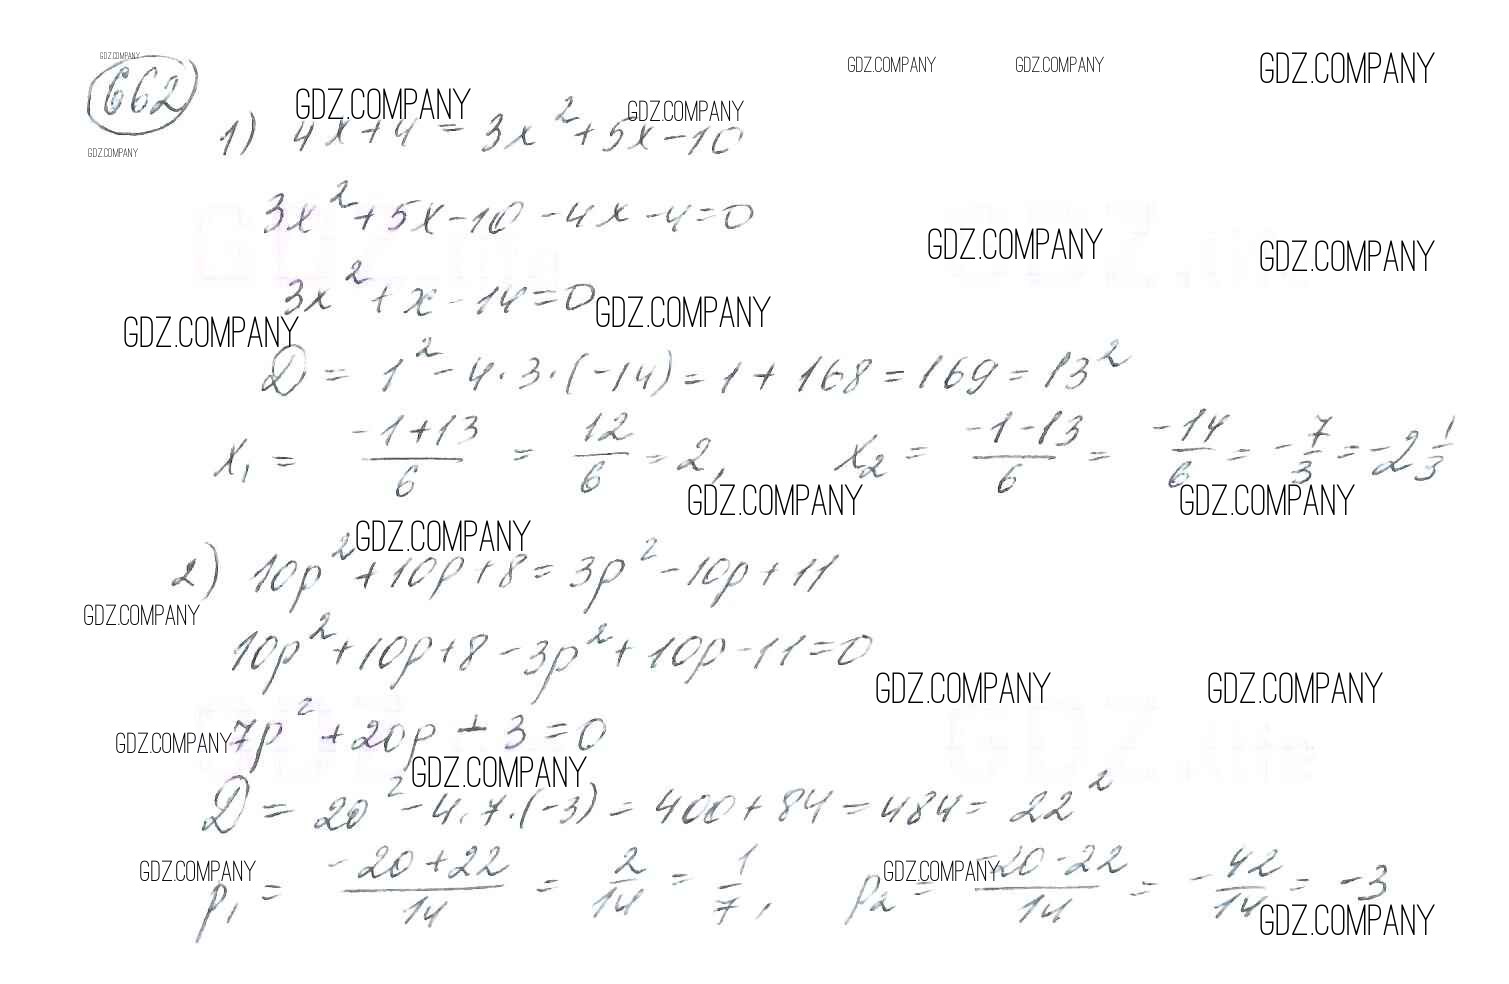 GDZ.COMPANY
662 GDZ.COMPANY GDZ.COMPANY GDZ.COMPANY GDZ.COMPANY GDZ.COMPANY
GDZ.COMPANY 1) 4x+4 = 3x²+5x-10
3x²+5x-10-4x-4=0
GDZ.COMPANY GDZ.COMPANY
3x²+x-14=0 GDZ.COMPANY
GDZ.COMPANY
D = 1²-4·3·(-14)=1+168=169=13²
x₁ = (-1+13)/6 = 12/6 = 2, x₂ = (-1-13)/6 = -14/6 = -7/3 = -2 1/3
GDZ.COMPANY GDZ.COMPANY
GDZ.COMPANY
2) 10p²+10p+8=3p²-10p+11
GDZ.COMPANY
10p²+10p+8-3p²+10p-11=0
GDZ.COMPANY GDZ.COMPANY
GDZ.COMPANY 7p²+20p-3=0
GDZ.COMPANY
D = 20²-4·7·(-3) = 400+84=484=22²
GDZ.COMPANY GDZ.COMPANY
p₁ = (-20+22)/14 = 2/14 = 1/7, p₂ = (-20-22)/14 = -42/14 = -3
GDZ.COMPANY